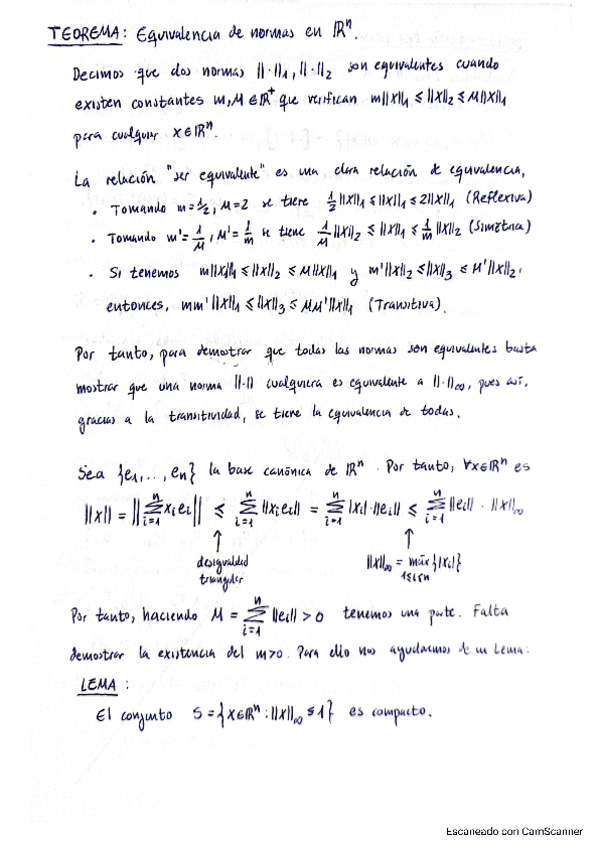 TEOREMA: Equivalencia de normas en ℝⁿ.
Decimos que dos normas ||·||₁, ||·||₂ son equivalentes cuando
existen constantes m, M ∈ ℝ⁺ que verifican m||x||₁ ≤ ||x||₂ ≤ M||x||₁
para cualquier x ∈ ℝⁿ.
La relación "ser equivalente" es una clara relación de equivalencia,
· Tomando m=1/2, M=2 se tiene 1/2||x||₁ ≤ ||x||₁ ≤ 2||x||₁ (Reflexiva)
· Tomando m'=1/M, M'=1/m se tiene 1/M||x||₂ ≤ ||x||₁ ≤ 1/m||x||₂ (Simétrica)
· Si tenemos m||x||₁ ≤ ||x||₂ ≤ M||x||₁ y m'||x||₂ ≤ ||x||₃ ≤ M'||x||₂,
entonces, mm'||x||₁ ≤ ||x||₃ ≤ MM'||x||₁ (Transitiva).
Por tanto, para demostrar que todas las normas son equivalentes basta
mostrar que una norma ||·|| cualquiera es equivalente a ||·||∞, pues así,
gracias a la transitividad, se tiene la equivalencia de todas.
Sea {e₁,..., eₙ} la base canónica de ℝⁿ. Por tanto, ∀x∈ℝⁿ es
||x|| = ||∑ᵢ₌₁ⁿ xᵢeᵢ|| ≤ ∑ᵢ₌₁ⁿ ||xᵢeᵢ|| = ∑ᵢ₌₁ⁿ |xᵢ|·||eᵢ|| ≤ ∑ᵢ₌₁ⁿ ||eᵢ|| · ||x||∞
↑ ↑
desigualdad ||x||∞ = máx{|xᵢ|}
triangular 1≤i≤n
Por tanto, haciendo M = ∑ᵢ₌₁ⁿ ||eᵢ|| > 0 tenemos una parte. Falta
demostrar la existencia del m>0. Para ello nos ayudamos de un Lema:
LEMA:
El conjunto S = {x∈ℝⁿ : ||x||∞ ≤ 1} es compacto.
Escaneado con CamScanner